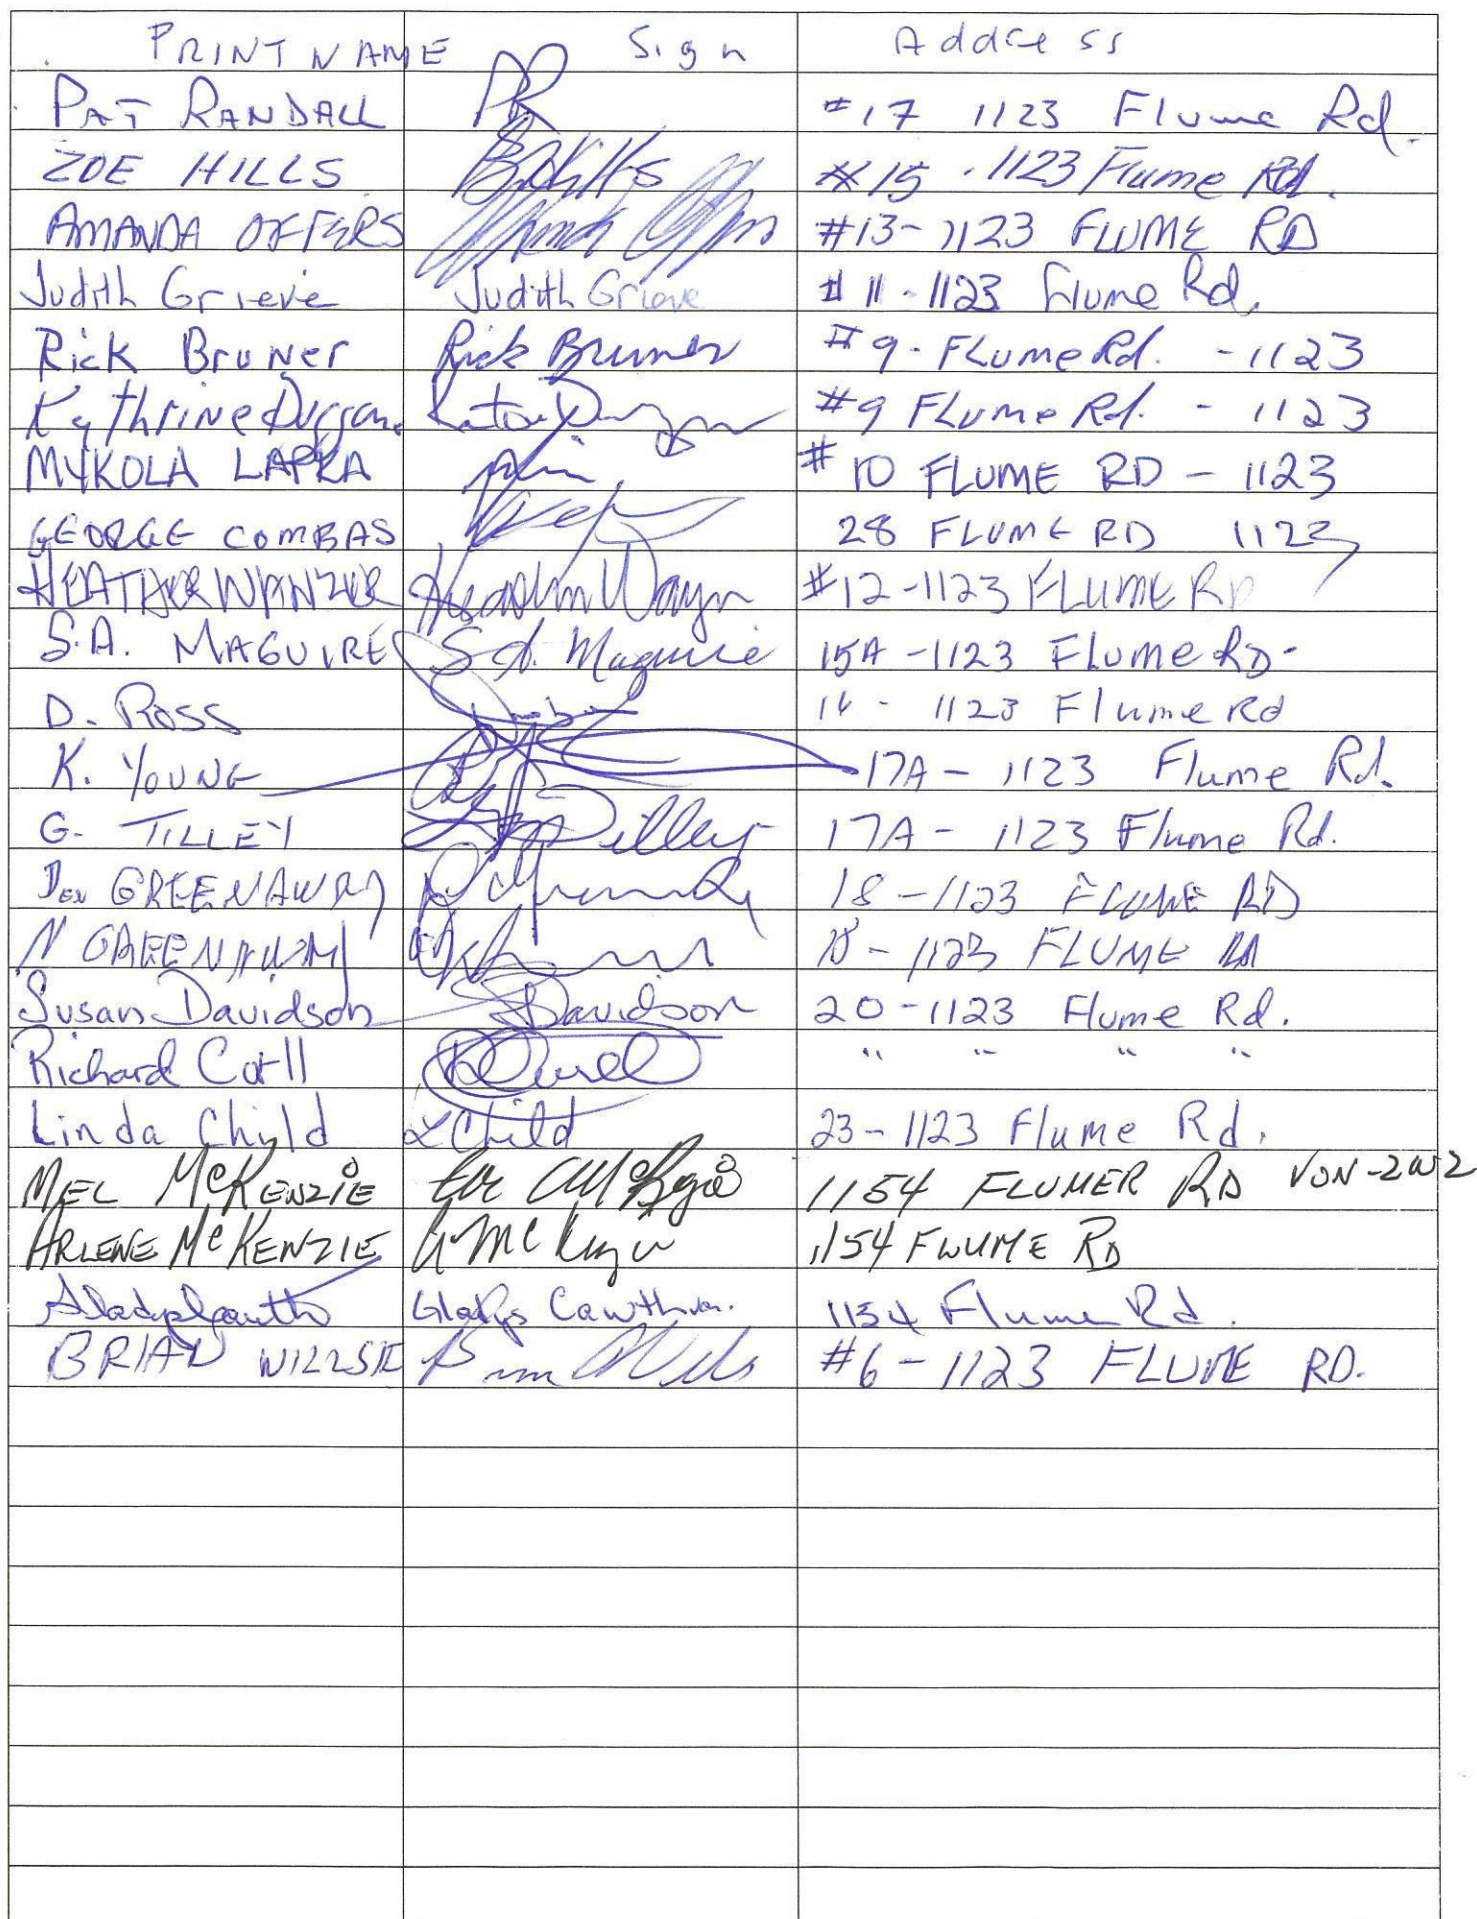 PRINT NAME Sign Address
PAT RANDALL PR #17 1123 Flume Rd.
ZOE HILLS #15 - 1123 Flume Rd.
AMANDA OFFERS #13-1123 FLUME RD
Judith Grieve Judith Grieve #11-1123 Flume Rd.
Rick Bruner Rick Bruner #9-Flume Rd. - 1123
Kythrine Duggan #9 Flume Rd. - 1123
MYKOLA LAPKA #10 FLUME RD - 1123
GEORGE COMBAS 28 FLUME RD 1123
HEATHER #12-1123 FLUME RD
S.A. MAGUIRE S A. Maguire 15A-1123 Flume RD-
D. ROSS 1123 Flume Rd
K. YOUNG 17A - 1123 Flume Rd.
G. TILLEY Tilley 17A - 1123 Flume Rd.
GREENAWAY 18-1123 FLUME RD
N GREENAWAY 18-1123 FLUME RD
Susan Davidson SDavidson 20-1123 Flume Rd.
Richard " " " "
Linda Child LChild 23-1123 Flume Rd.
MEL McKENZIE 1154 FLUMER RD VON-2W2
ARLENE McKENZIE A McKenzie 1154 FLUME RD
Gladys 1154 Flume Rd.
BRIAN WILLSIE #6-1123 FLUME RD.